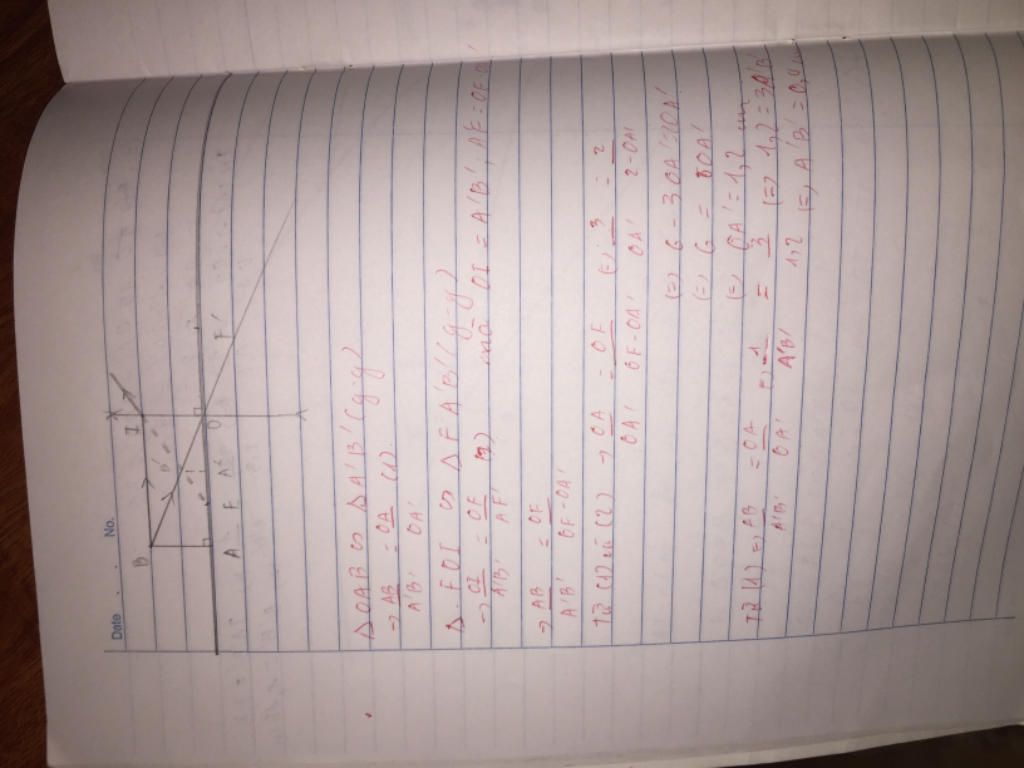 Date . . No.
B I
B'
A F A' O F'
Δ OAB ∽ Δ A'B' (g-g)
→ AB/A'B' = OA/OA' (1)
Δ. FOI ∽ Δ FA'B' (g-g)
→ OI/A'B' = OF/A'F' (2) mà OI = A'B', A'F = OF -
→ AB/A'B' = OF/OF-OA'
Từ (1) với (2) → OA/OA' = OF/OF-OA' (=) 3/OA' = 2/2-OA'
(=) 6 - 3OA' = OA'
(=) 6 = OA'
(=) OA' = 1,2 cm
Từ (1) =) AB/A'B' = OA/OA' (=) 1/A'B' = 3/1,2 (=) 1,2 = 3A'
(=) A'B' = 0,4